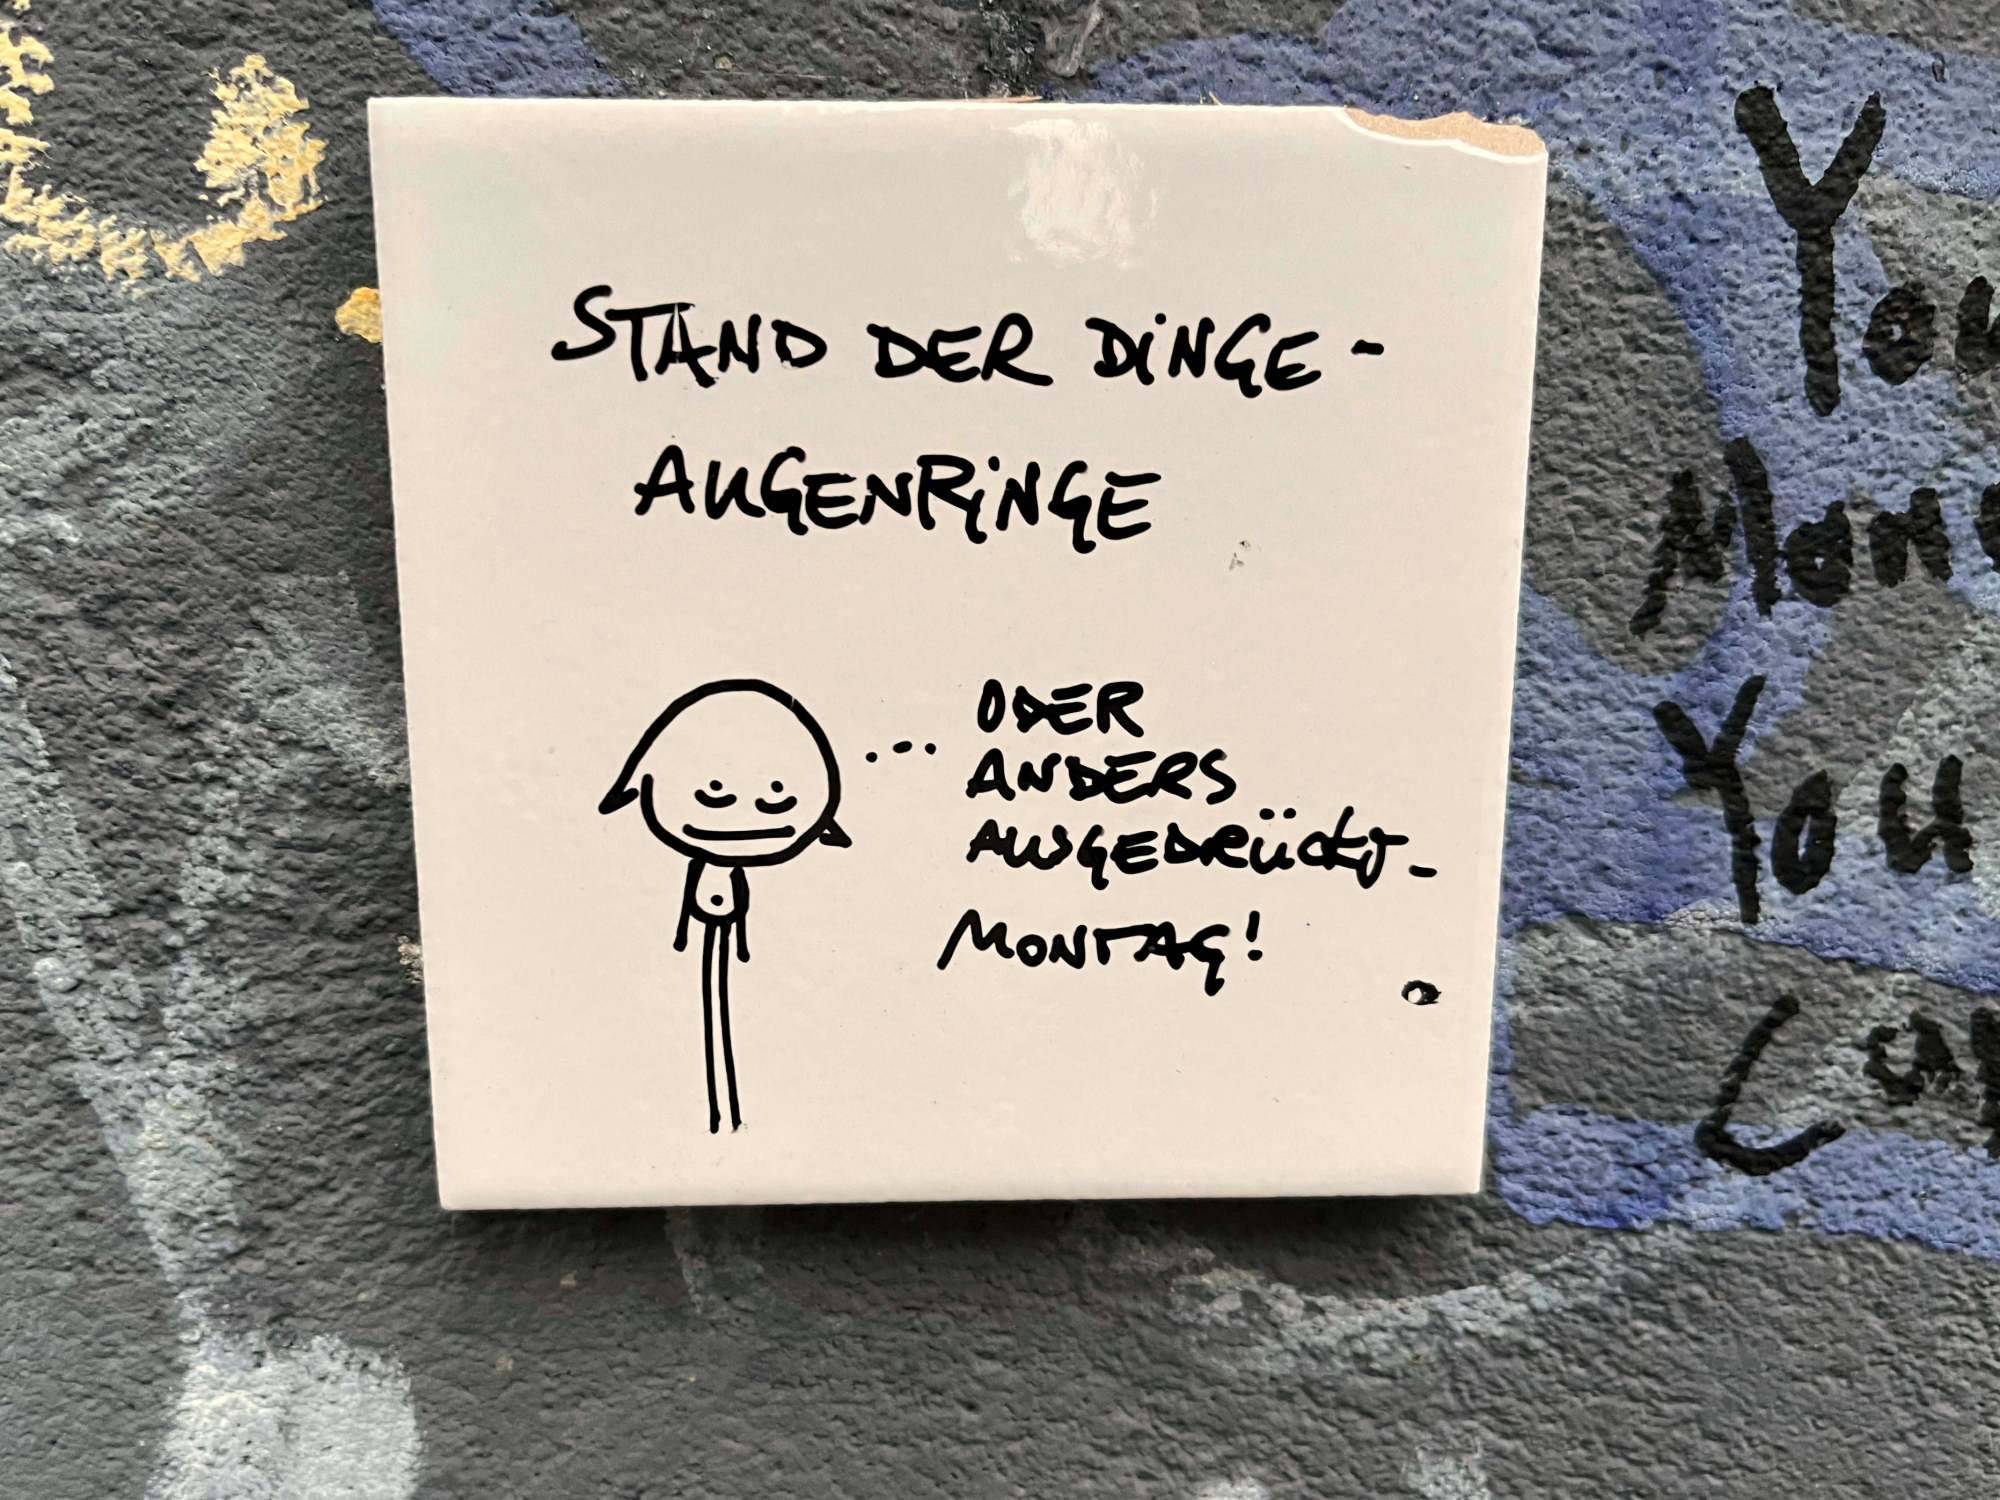 STAND DER DINGE -
AUGENRINGE
... ODER
ANDERS
AUSGEDRÜCKT -
MONTAG!
You
You